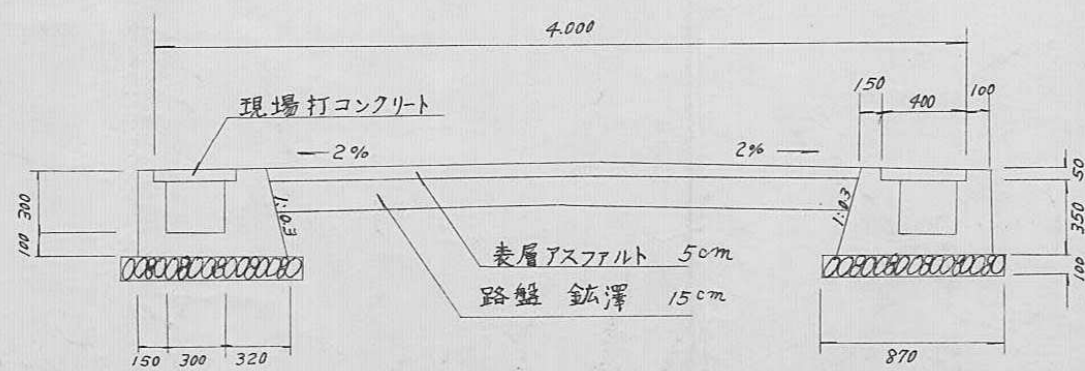 4.000
150
400
100
現場打コンクリート
2%
2%
300
100
1:03
1:03
50
350
100
表層アスファルト 5cm
路盤 鉱滓 15cm
150
300
320
870